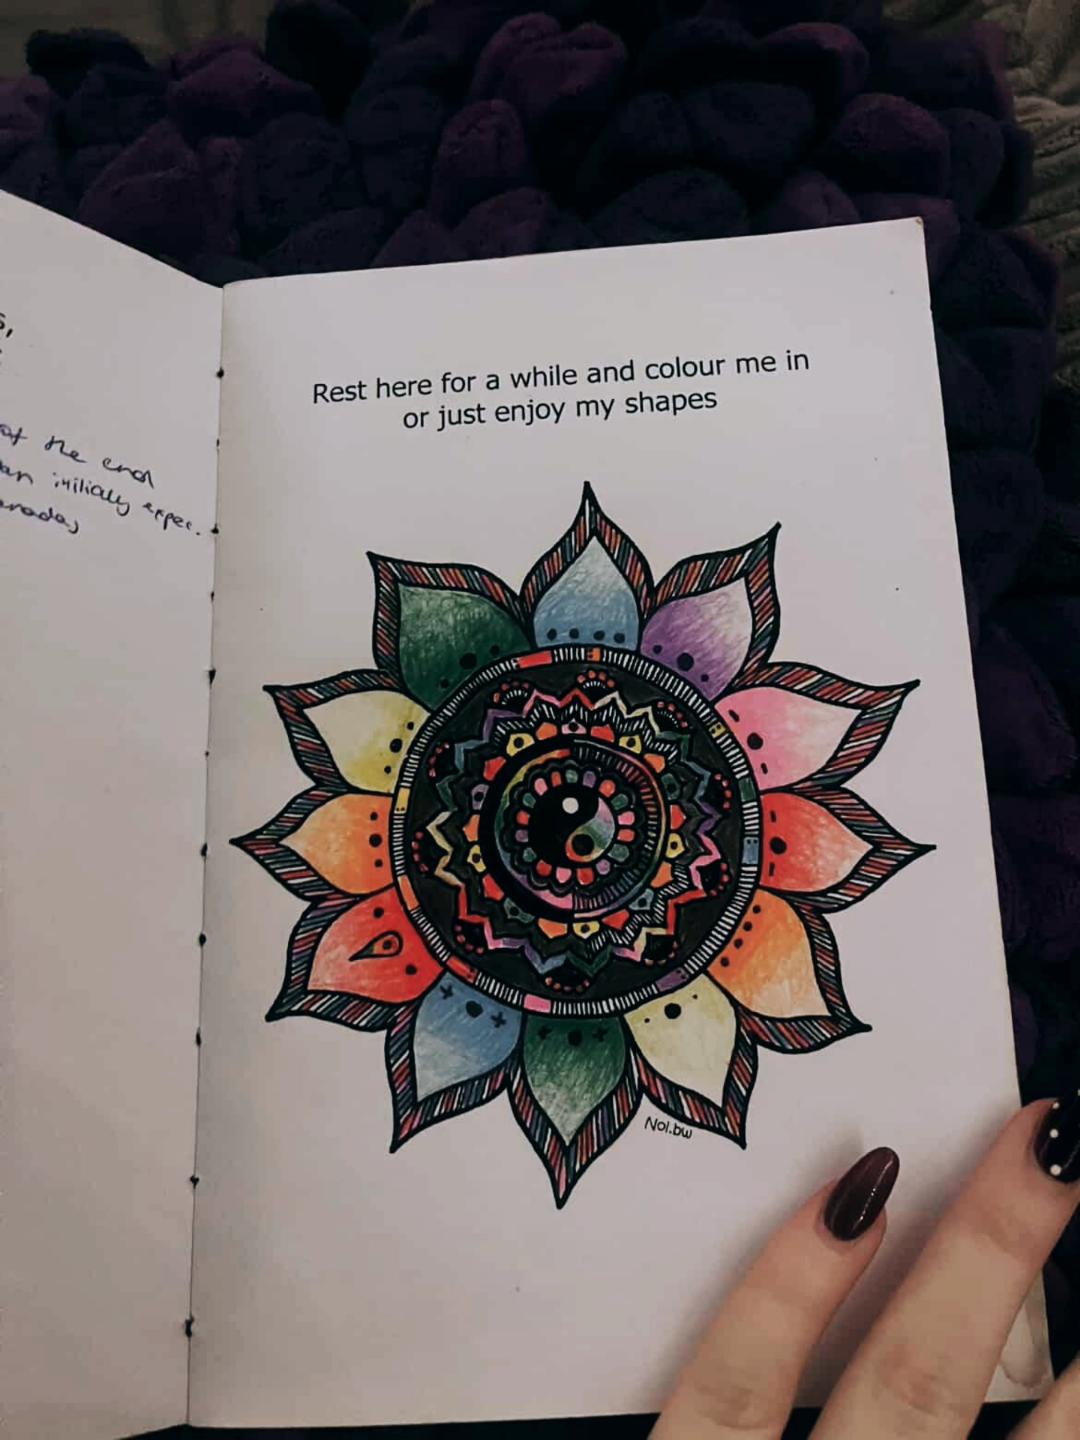 s,
at the end
initially expec.
Rest here for a while and colour me in
or just enjoy my shapes
Nol.bw